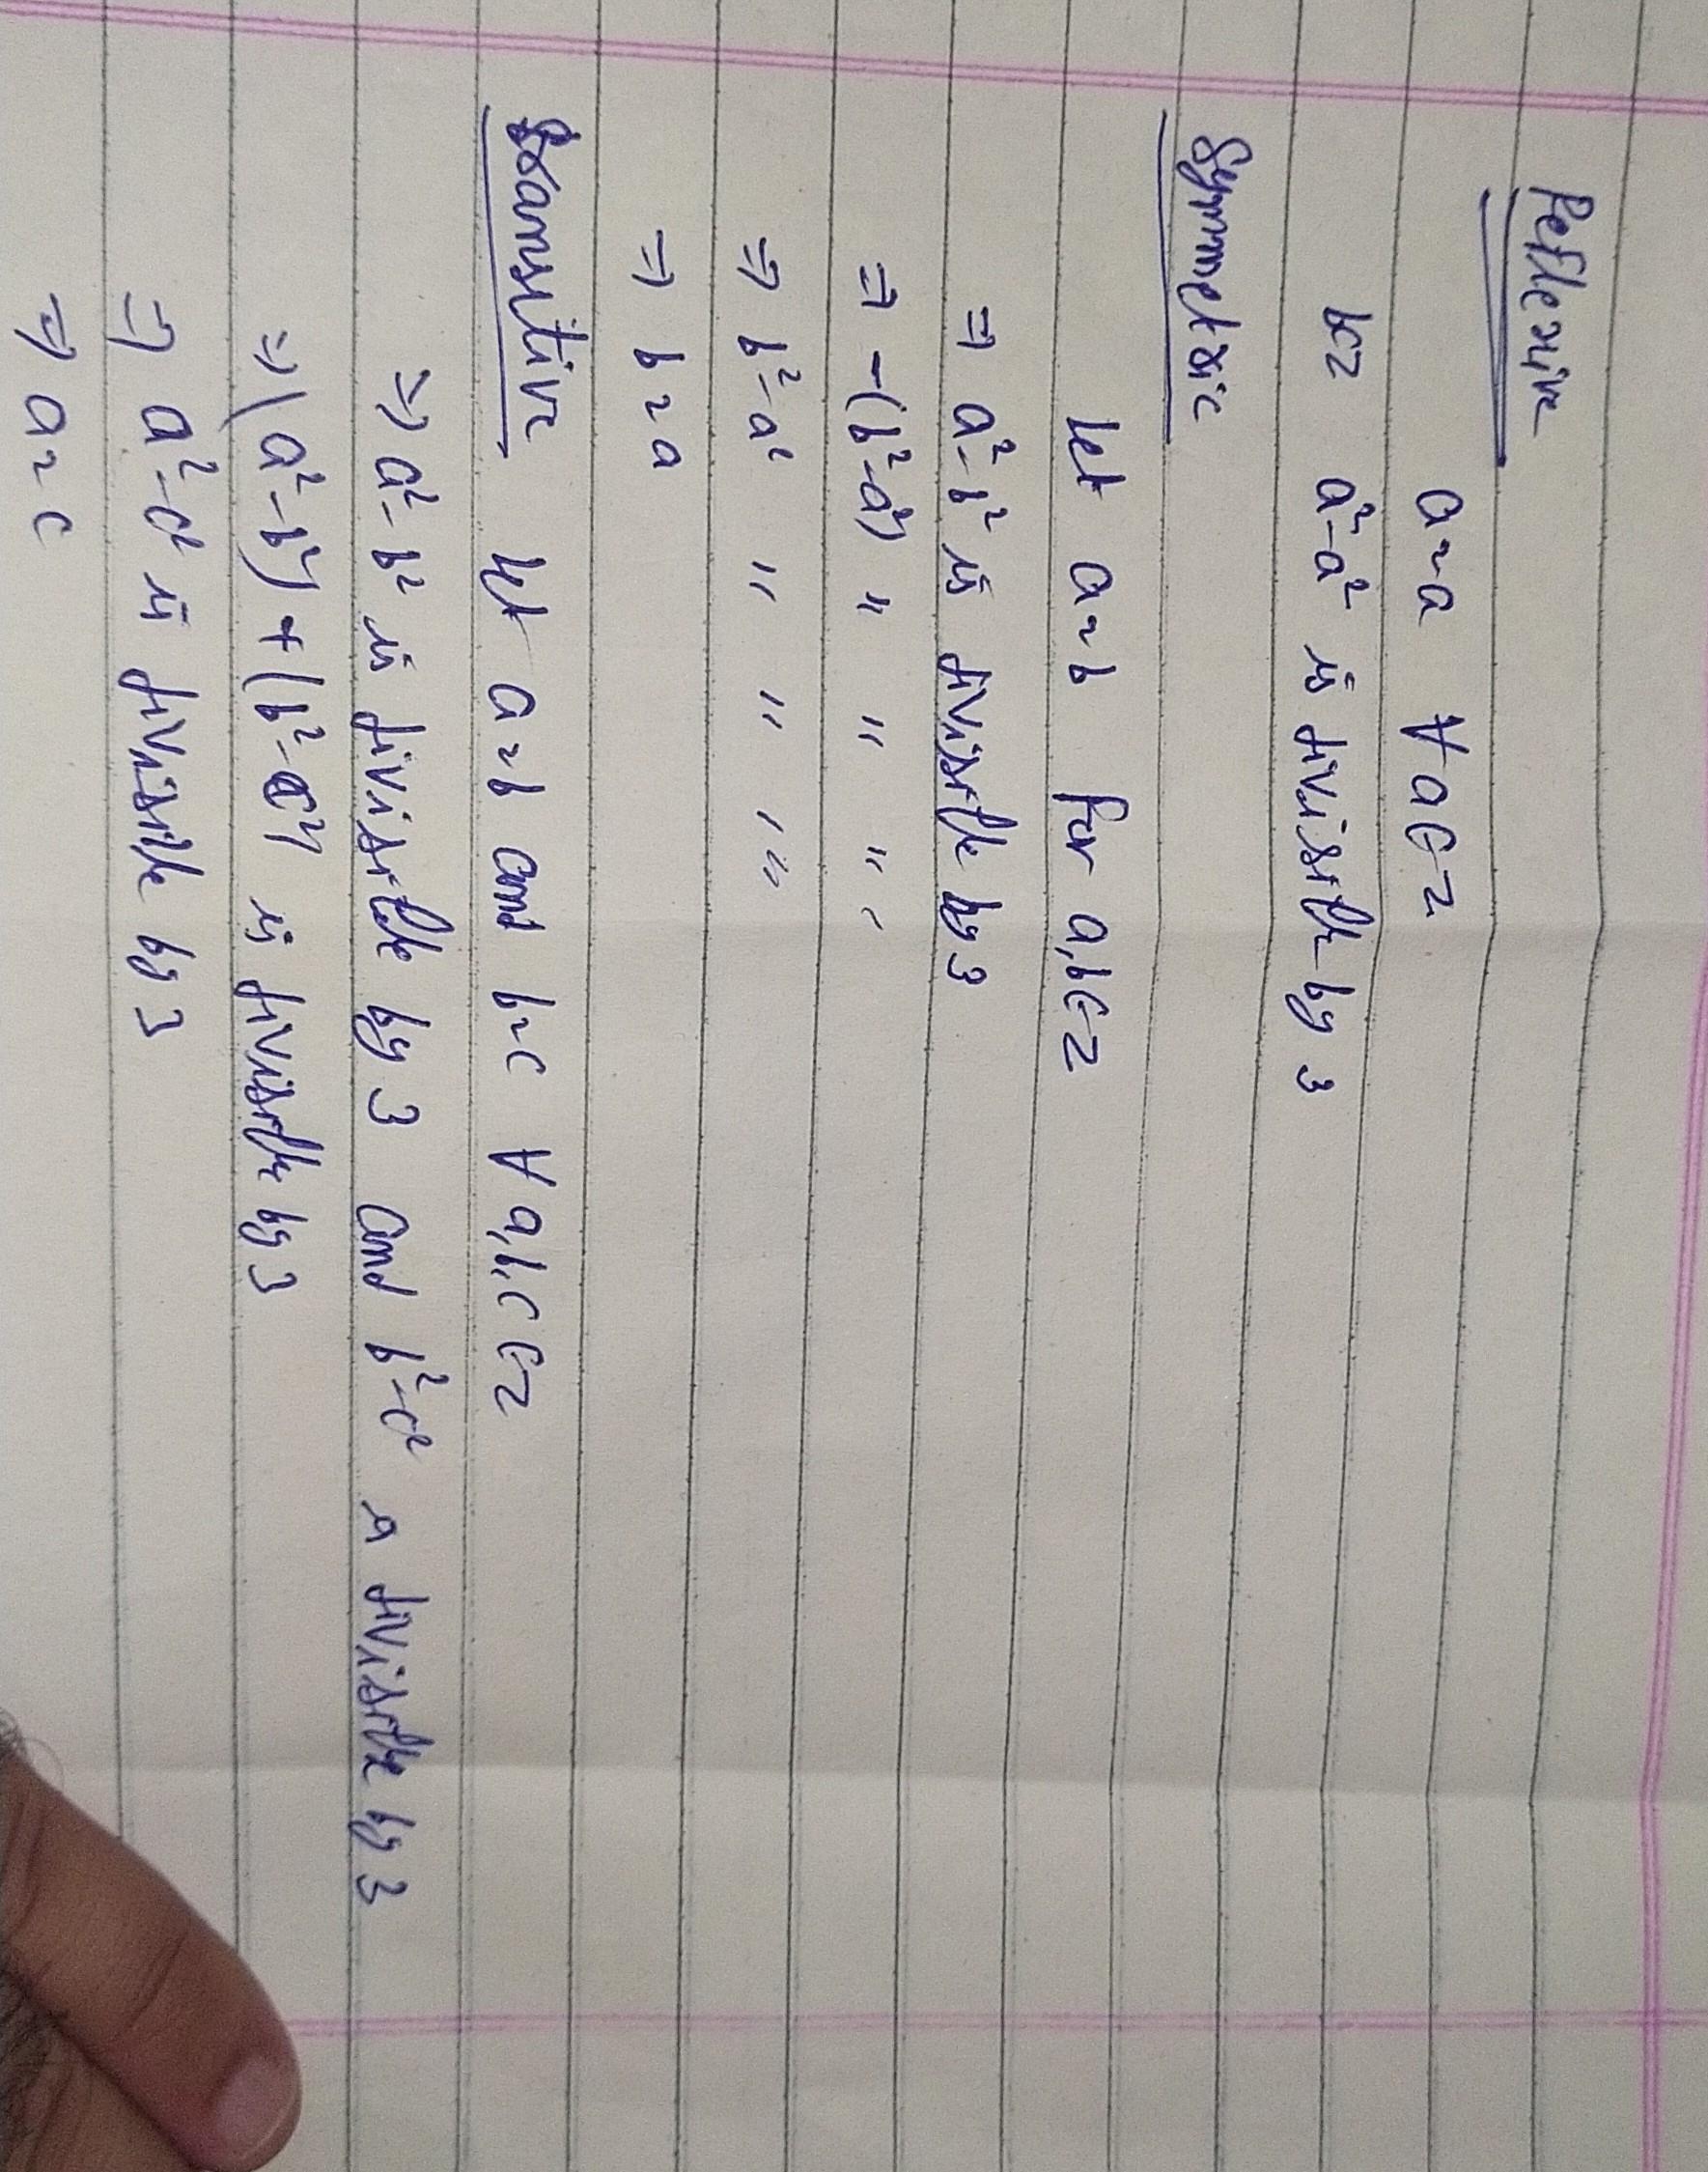 Reflexive
a~a ∀ a∈Z
bcz a²-a² is divisible by 3
Symmetric
let a~b for a,b∈Z
⇒ a²-b² is divisible by 3
⇒ -(b²-a²) " " " '
⇒ b²-a² " " ' "
⇒ b~a
Transitive let a~b and b~c ∀ a,b,c∈Z
⇒ a²-b² is divisible by 3 and b²-c² is divisible by 3
⇒ (a²-b²) + (b²-c²) is divisible by 3
⇒ a²-c² is divisible by 3
⇒ a~c